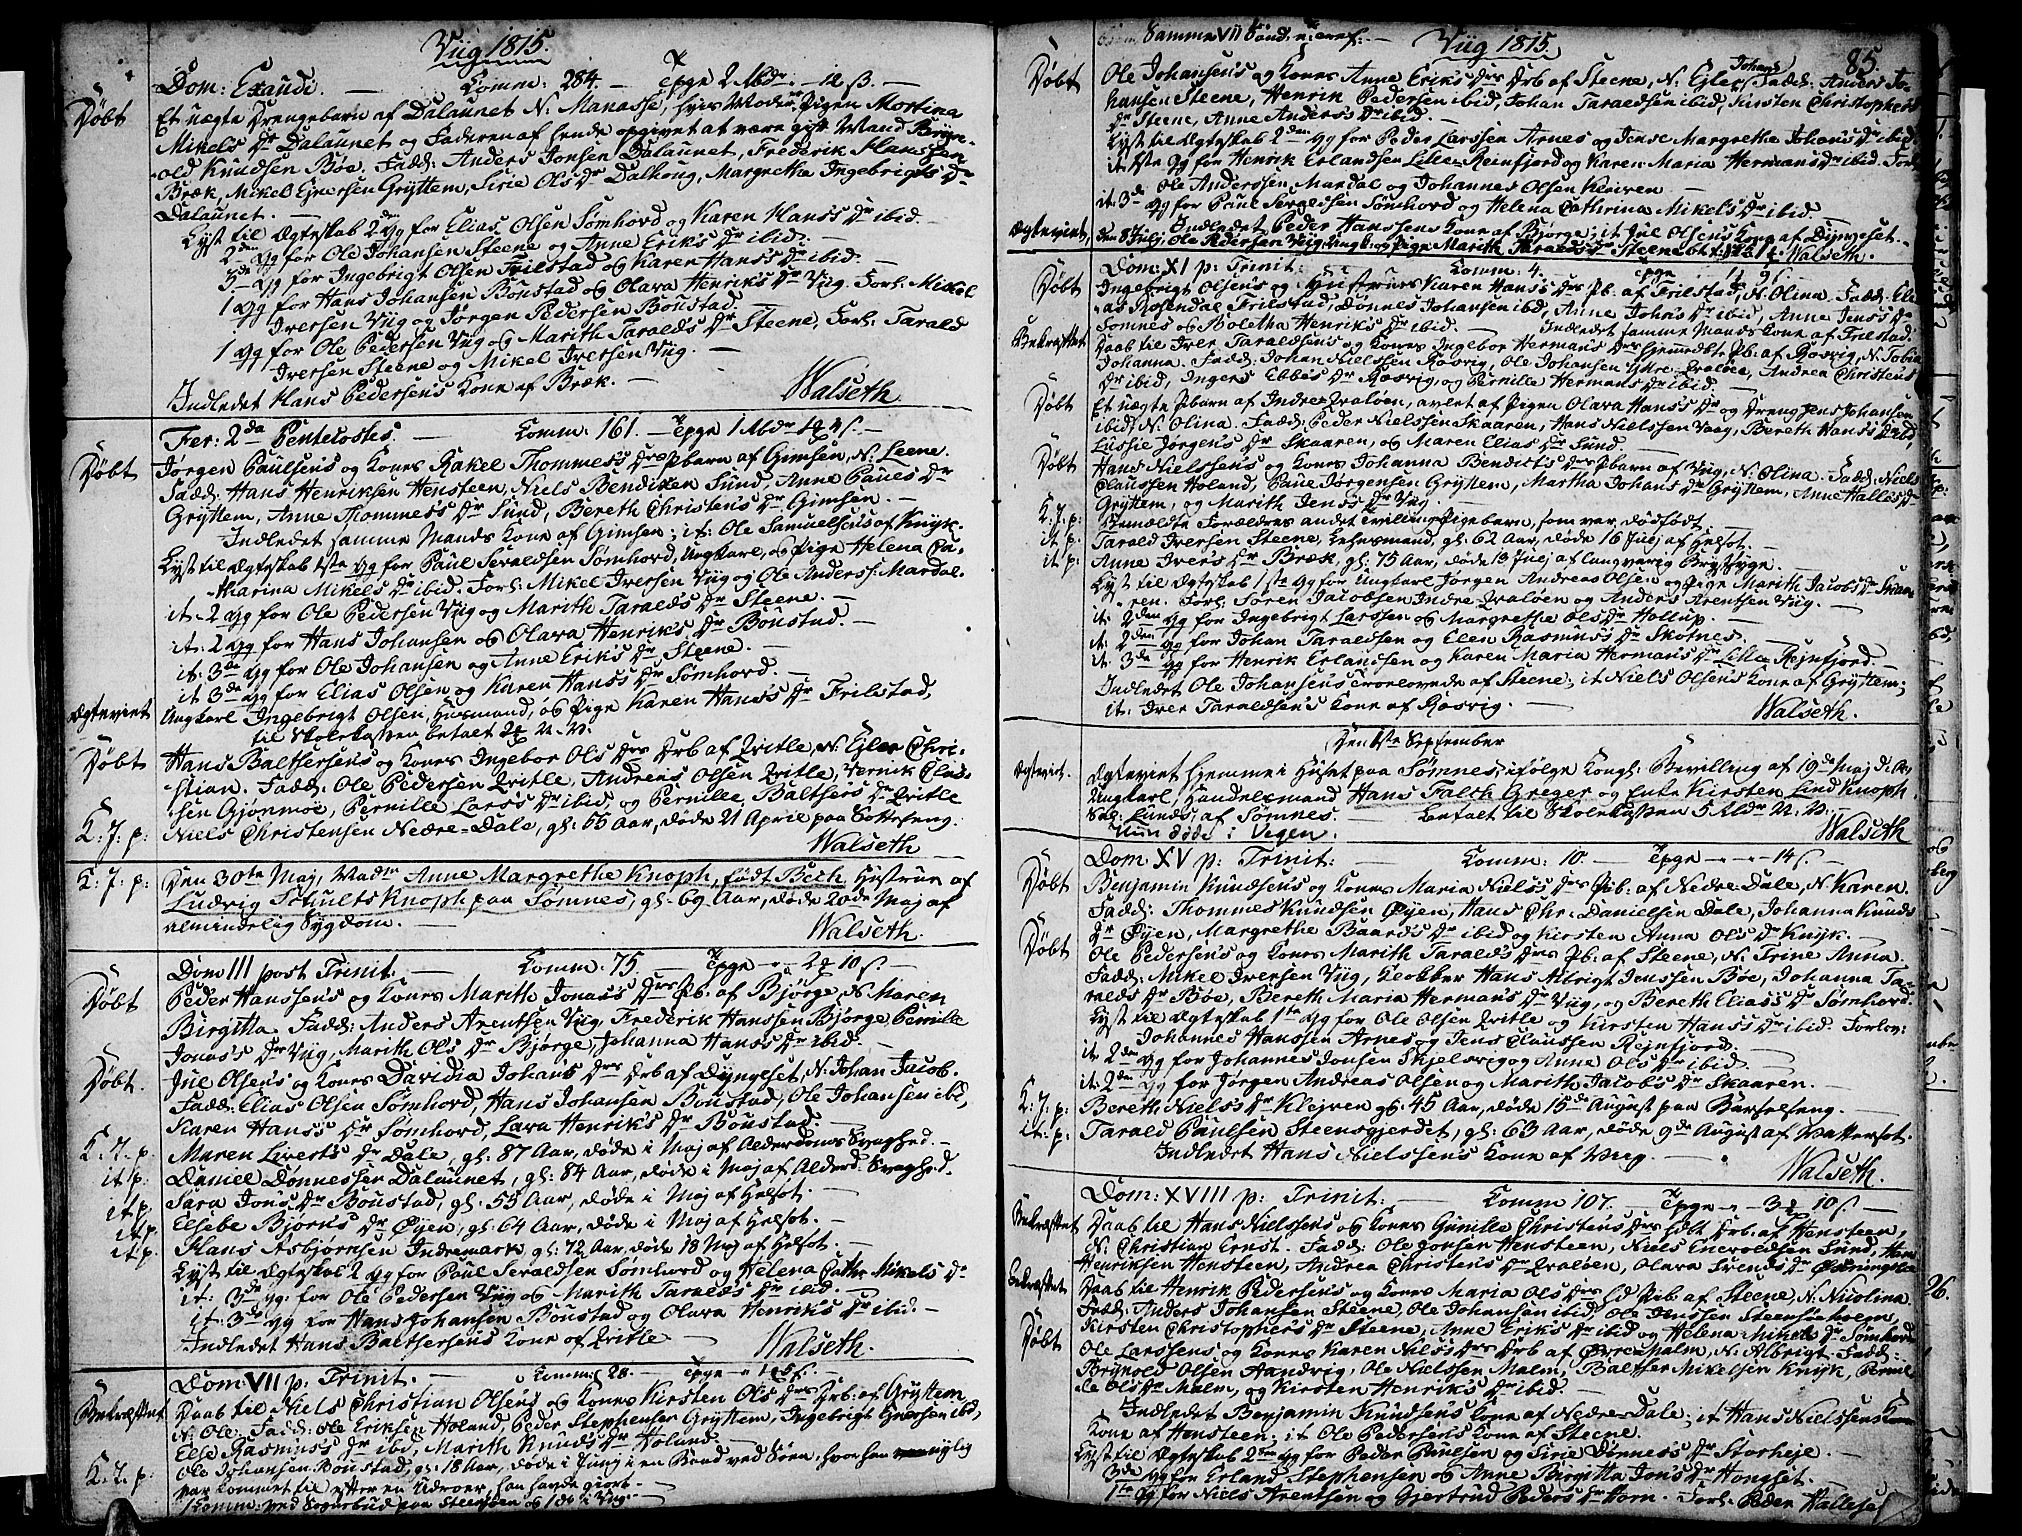 Viig 1815.
Dom: Exaudi. — Komm: 284. — Tpge 2 Mbdr. — 12 ß. —
Døbt Et uægte Drengebarn af Dalaunet N: Manasse, hvis Moder Pigen Mortina
Mikels Dr Dalaunet og Faderen af hende opgivet at være gift Mand Bryn-
old Knudsen Bøe. Fadd: Anders Jonsen Dalaunet, Frederik Hanssen
Bræk, Mikel Ejnersen Gryttem, Sirie Ols Dr Dalhoug, Margrethe Ingebrigts Dr
Dalaunet. —
Lyst til Ægteskab 2den Gg for Elias Olsen Sømhord og Karen Hans's Dr ibid. —
2den Gg for Ole Johansen Steene og Anne Eriks Dr ibid. —
3de Gg for Ingebrigt Olsen Frilstad og Karen Hans's Dr ibid. —
1 Gg for Hans Johansen Boustad og Olava Henriks Dr Viig. Forl: Mikel
Iversen Viig og Jørgen Pedersen Boustad. —
1 Gg for Ole Pedersen Viig og Marith Taralds Dr Steene, Forl: Tarald
Iversen Steene og Mikel Iversen Viig. —
Indledet Hans Pedersens Kone af Bræk. — Walseth
Fer: 2da Pentecostes. — Komm: 161. — Tpge 1 Mbdr
Døbt Jørgen Paulsens og Kones Rakel Thommes's Drs Pbarn af Gimsen, N: Leene.
Fadd: Hans Henriksen Hensteen, Niels Bendixen Sund, Anne Pauls Dr
Gryttem, Anne Thommes's Dr Sund, Bereth Christens Dr Gimsen. —
Indledet samme Mands Kone af Gimsen; it: Ole Samuelsens af Knyk. —
Lyst til Ægteskab 1ste Gg for Paul Seraldsen Sømhord, Ungkarl, og Pige Helena Ca-
tharina Mikels Dr ibid. Forl: Mikel Iversen Viig og Ole Anderss: Mardal.
it: 2 Gg for Ole Pedersen Viig og Marith Taralds Dr Steene. —
it: 2 Gg for Hans Johansen og Olava Henriks Dr Boustad. —
it: 3de Gg for Ole Johansen og Anne Eriks Dr Steene. —
it 3de Gg for Elias Olsen og Karen Hans's Dr Sømhord. —
Ægteviet Ungkarl Ingebrigt Olsen, Husmand, og Pige Karen Hans's Dr Frilstad,
til Skolekassen betalt
Døbt Hans Balthersens og Kones Ingebor Ols Drs Drb af Qvitle, N: Ejler Chri-
stian. Fadd: Ole Pedersen Qvitle, Andreas Olsen Qvitle, Vernik Claus-
sen Gjønmoe, Pernille Lars's Dr ibid, og Pernille Balthers Dr Qvitle
K: J: p: Niels Christensen Nedre-Dale, gl: 55 Aar, døde 21 April paa Sotteseng.
Walseth
K: J: p: Den 30te Maj, Madm Anne Margrethe Knoph, født Bech Hustrue af
Ludvig Schults Knoph paa Sømnes, gl: 69 Aar, døde 20de Maj af
almindelig Sygdom. — Walseth.
Dom III post Trinit. — Komm: 75. — Tpge 10 ß. —
Døbt Peder Hanssens og Kones Marith Jonas's Drs Pb: af Bjørge, N: Maren
Birgitta. Fadd: Anders Arentsen Viig, Frederik Hanssen Bjørge, Pernille
Jonas's Dr Viig, Marith Ols Dr Bjørge, Johanna Hans's Dr ibid. —
Døbt. Jul Olsens og Kones Davidia Johans Drs Drb af Dyngeset, N: Johan Jacob.
Fadd: Elias Olsen Sømhord, Hans Johansen Boustad, Ole Johansen ibd,
Karen Hans's Dr Sømhord, Lava Henriks's Dr Boustad. —
K: J: p. Maren Liverts Dr Dale, gl: 87 Aar, døde i Maj af Alderdoms Svaghed. —
it p: Daniel Dønnessen Dalaunet, gl: 84 Aar, døde i Maj af Alderd: Svaghed.
it p. Sara Jons Dr Boustad, gl: 55 Aar, døde i Maj af Helsot. —
it p: Elsebe Bjørks Dr Øyen, gl: 64 Aar, døde i Maj af Helsot. —
it p. Hans Asbjørnsen Indremark, gl: 72 Aar, døde 18 Maj af Helsot. —
Lyst til Ægteskab 2 Gg for Paul Seraldsen Sømhord og Helena Cathr: Mikels Dr
it: 3de Gg: for Ole Pedersen Viig og Marith Taralds Dr ibid. —
it: 3de Gg for Hans Johansen Boustad og Olava Henriks Dr ibid. —
Indledet Hans Balthersens Kone af Qvitle — Walseth.
Dom: VII p: Trinit. — Komm: 28. — Tpge
Bekræftet Daab til Niels Christian Olsens og Kones Kirsten Ols Drs Drb. af Gryttem,
N: Ole. Fadd: Ole Eriksen Holand, Peder Stephensen Gryttem, Ingebrigt Ejnersen ibd,
Else Rasmus's Dr ibd, Marith Knuds Dr Holand. —
K: J: p: Ole Johansen Boustad, gl: 18 Aar, døde i Junj i en Baad ved Søen, hvor han nylig
var kommet til efter en Udroer, han havde gjort. —
1 Komm: ved Sognebud paa Steensøen og 1 do i Viig. —
Samme VII Sønd: p: Trinit: — Viig 1815. 85.
Døbt Ole Johansens og Kones Anne Eriks Drs Drb af Steene, N. Ejler Johans Fadd: Anders Jo-
hansen Steene, Henrik Pedersen ibid, Johan Taraldsen ibid, Kirsten Christophers
Dr Steene, Anne Anders's Dr ibid. —
Lyst til Ægteskab 2den Gg for Peder Larssen Arnes og Jense Margrethe Johans Dr ibid.
it. 1ste Gg for Henrik Erlandsen Lille-Reinfjord og Karen Maria Hermans Dr ibid. Forl
Ole Anderssen Mardal og Johannes Olsen Kleiven —
it: 3de Gg for Paul Seraldsen Sømhord og Helena Cathrina Mikels Dr ibid. —
Indledet Peder Hanssens Kone af Bjørge; it: Jul Olsens Kone af Dyngeset. —
Ægteviet, Den 8 Julj, Ole Pedersen Viig, Ungk. og Pige Marith Taralds Dr Steene Walseth.
Dom: XI p: Trinit: — Komm: 4. — Tpge
Døbt Ingebrigt Olsens og Hustrues Karen Hans's Drs Pb. af Frilstad, N. Olina. Fadd: Ele-
as Rosendal Frilstad, Dønnes Johansen ibd, Anne Johs Dr ibid, Anne Jens's Dr
Sømnes og Boletha Henriks's Dr ibid. — Indledet samme Mands Kone af Frilstad.
Bekræftet Daab til Iver Taraldsens og Kones Ingebor Hermans Drs hjemmedbt Pb. af Rosvig, N. Tobia
Johanna. Fadd: Johan Nielssen Rosvig, Ole Johansen Ytre-Qvaløen, Andrea Christens
Dr ibid, Inger Ebbes Dr Rosvig, og Pernille Hermans Dr ibid. —
Døbt Et uægte Pbarn af Indre-Qvaløen, avlet af Pigen Olava Hans's Dr og Dreng Jens Johansen
ibid, N. Olina. Fadd: Peder Nielssen Skaaren, Hans Nielssen Vaag, Bereth Hans's Dr ibd,
Lussie Jørgens Dr Skaaren, og Maren Elias Dr Sund —
Døbt Hans Nielssens og Kones Johanna Bendicts's Drs Pbarn af Viig, N. Olina. Fadd: Niels
Claussen Holand, Paul Jørgensen Gryttem, Martha Johans Dr Gryttem, Anne Halles Dr
Gryttem, og Marith Jens's Dr Viig —
K: J: p: Bemeldte Forældres andet Tvilling-Pigebarn, som var dødfødt. —
it p: Tarald Iversen Steene, Lehnsmand, gl: 62 Aar, døde 16 Julj af Helsot. —
it p: Anne Ivers Dr Bræk, gl: 75 Aar, døde 19 Julj af langvarig Brystsyge. —
Lyst til Ægteskab 1ste Gg for Ungkarl Jørgen Andreas Olsen og Pige Marith Jacobs Dr Skaa-
ren. Forl: Søren Jacobsen Indre Qvaløen og Anders Arentsen Viig. —
it: 2den Gg for Ingebrigt Larssen og Margrethe Ols Dr Hollup. —
it: 2den Gg for Johan Taraldsen og Elen Rasmus's Dr Skotnes. —
it: 3de Gg for Henrik Erlandsen og Karen Maria Hermans Dr Lille Rejnfjord. —
Indledet Ole Johansens Troelovede af Steene; it Niels Olsens Kone af Gryttem;
it: Iver Taraldsens Kone af Rosvig. — Walseth.
Den 1ste September
Ægteviet. Ægteviet hjemme i Huset paa Sømnes, ifølge Kongl: Bevilling af 19de Maj d: A:
Ungkarl, Handelsmand Hans Falch Greger og Enke Kirsten Lind Knoph
Sal: Lunds, af Sømnes. — betalt til Skolekassen 5 Rbdr N. V. —
Hun døde i Vegen. Walseth
Dom XV p: Trinit: — Komm: 10. — Tpge — 14 ß. —
Døbt Benjamin Knudsens og Kones Maria Niels's Drs Pb: af Nedre-Dale, N. Karen
Fadd: Thommes Knudsen Øyen, Hans Chr: Danielsen Dale, Johanna Knuds
Dr Øyen, Margrethe Baards Dr ibid og Kirsten Anna Ols Dr Knyk. —
Døbt Ole Pedersens og Kones Marith Taralds Drs Pb. af Steene, N. Trine Anna.
Fadd: Mikel Iversen Viig, Klokker Hans Albrigt Jenssen Bøe, Johanna Ta-
ralds Dr Bøe, Bereth Maria Hermans Dr Viig, og Bereth Elias's Dr Sømhord.
Lyst til Ægteskab 1ste Gg for Ole Olsen Qvitle og Kirsten Hans's Dr ibid. Forlov:
Johannes Hanssen Arnes og Jens Claussen Rejnfjord. —
it: 2den Gg for Johannes Jonsen Skjelsvig og Anne Ols Dr ibid. —
it: 2den Gg for Jørgen Andreas Olsen og Marith Jacobs Dr Skaaren. —
K: J: p: Bereth Niels's Dr Klejven gl: 45 Aar, døde 15de August paa Barselseng. —
it: p: Tarald Paulsen Steensgjerdet, gl: 63 Aar, døde 9de August af Wattersot. —
Indledet Hans Nielssens Kone af Viig. — Walseth.
Dom: XVIII p: Trinit: — Komm 107. — Tpge 10 ß —
Bekræftet Daab til Hans Nielssens og Kones Gunilla Christens Drs hdbt Drb. af Hensteen,
N: Christian Ernst. Fadd: Ole Jonsen Hensteen, Niels Enevoldsen Sund, Hans
Henriksen Hensteen, Andrea Christens Dr Qvaløen, Olava Svends Dr
Bekræftet Daab til Henrik Pedersens og Kones Maria Ols Drs Pb af Steene, N. Nicolina.
Fadd: Anders Johansen Steene, Ole Johansen ibid, Ole
Kirsten Christophers Dr Steene, Anne Eriks Dr ibid og Helena Mikels Dr Sømhord
Døbt Ole Larssens og Kones Karen Nils Drs Drb af Øvre-Malm, N: Albrigt. Fadd:
Brynold Olsen Aandvig, Ole Nielssen Malm, Balther Mikelsen Knyk, Pernil-
le Ols Dr Malm, og Kirsten Henriks Dr ibid. —
Indledet Benjamin Knudsens Kone af Nedre-Dale; it Hans Nielssens
Kone af Hensteen; it Ole Pedersens Kone af Steene.
Lyst til Ægteskab 2den Gg for Peder Paulsen og Sirie Dønnes's Dr Storheje. —
3de Gg for Erland Stephensen og Anne Birgitta Jons Dr Hongset. —
1ste Gg for Niels Arentsen og Gjertrud Peders Dr Horn. Forl: Peder Hallesen